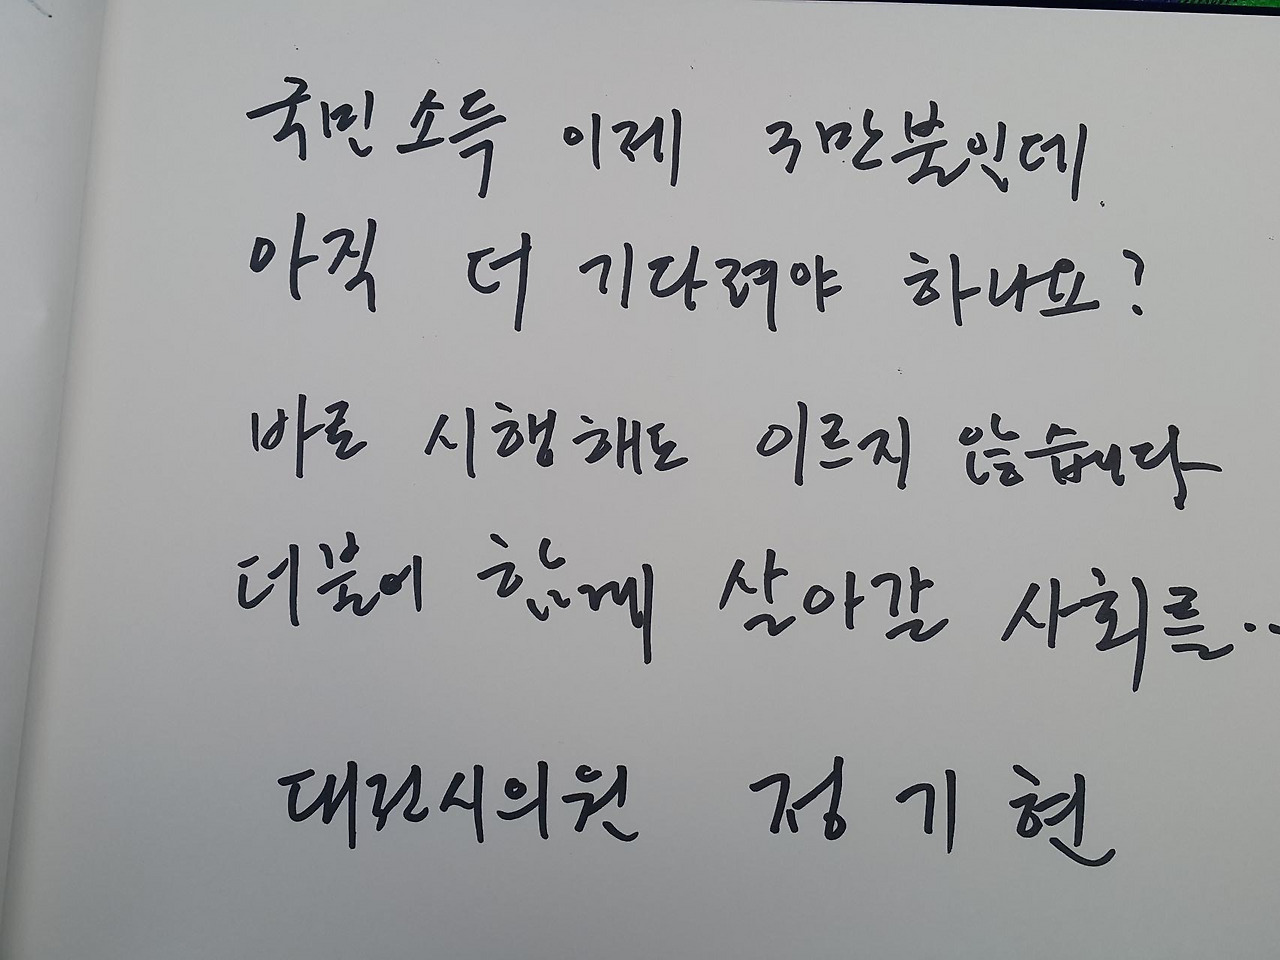 국민소득 이제 3만불인데
아직 더 기다려야 하나요?
바로 시행해도 이르지 않습니다
더불어 함께 살아갈 사회를..
대전시의원 정기현